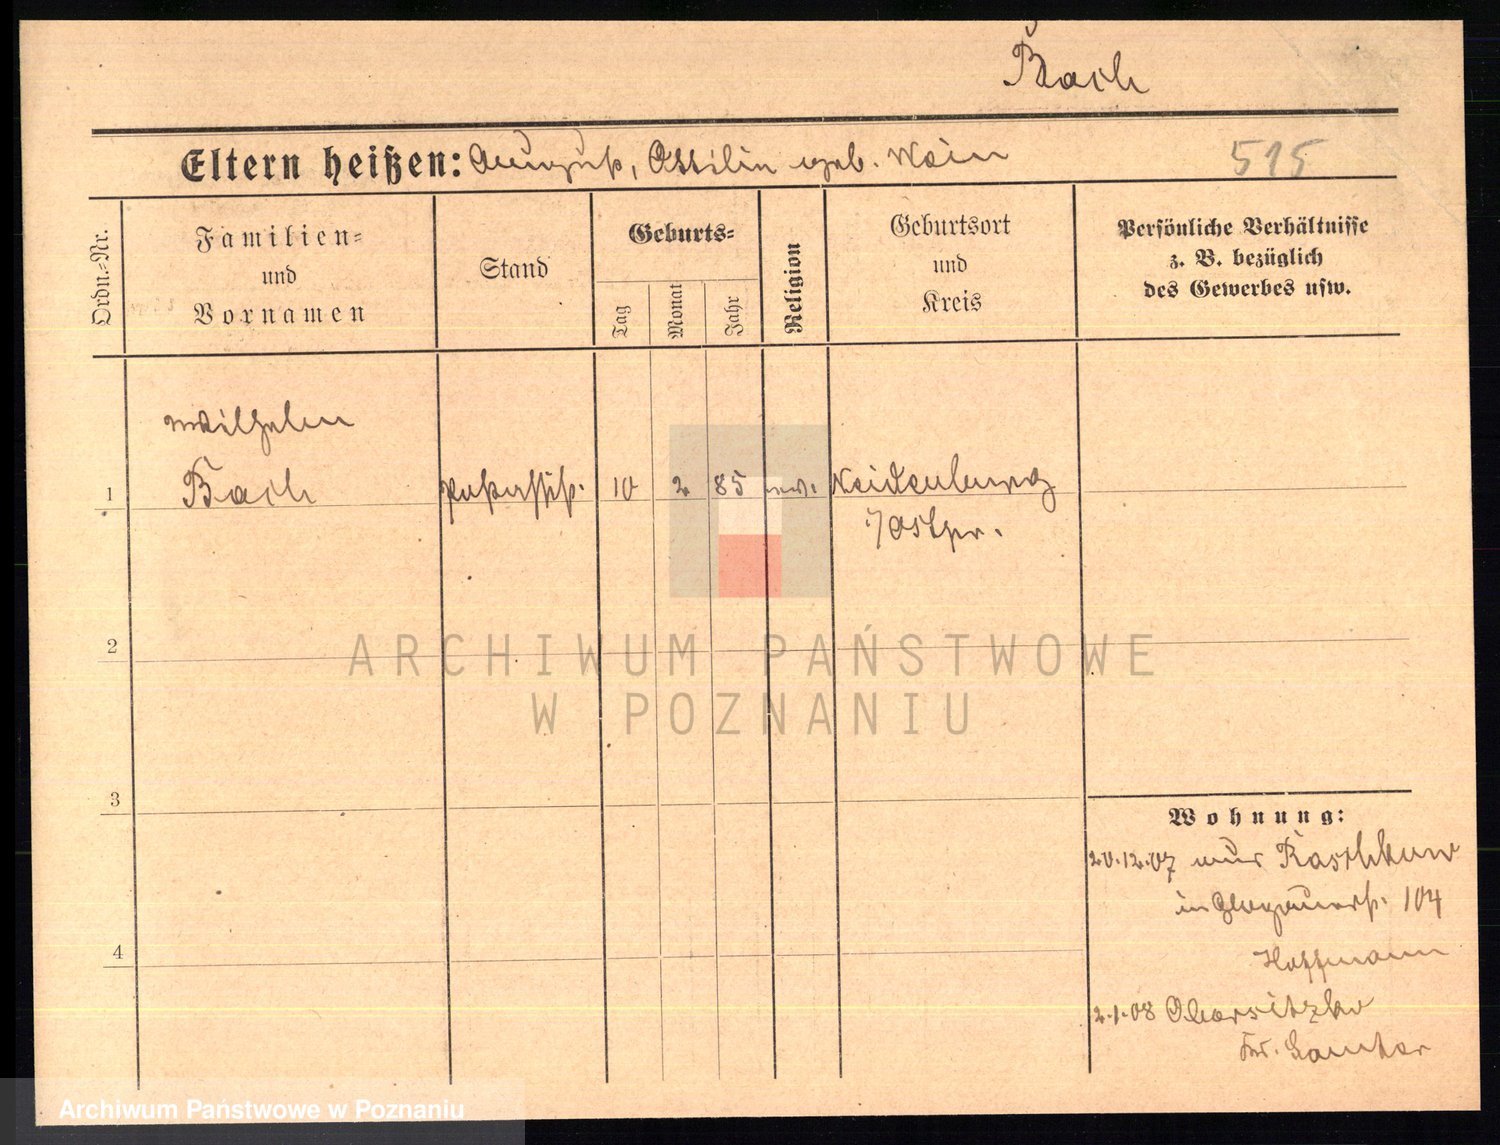 Bach
Eltern heißen: August, Ottilie geb. Klein
515
Ordn.-Nr.
Familien-
und
Vornamen
Stand
Geburts-
Tag
Monat
Jahr
Religion
Geburtsort
und
Kreis
Persönliche Verhältnisse
z. B. bezüglich
des Gewerbes usw.
Wilhelm
1 Bach 10 2 85 ev. Neidenburg
i/Ostpr.
2
ARCHIWUM PAŃSTWOWE
W POZNANIU
3
Wohnung:
20.12.07 aus Raschkow
in Glogauerst. 104
4
Hoffmann
2.1.08 Obersitzko
Archiwum Państwowe w Poznaniu